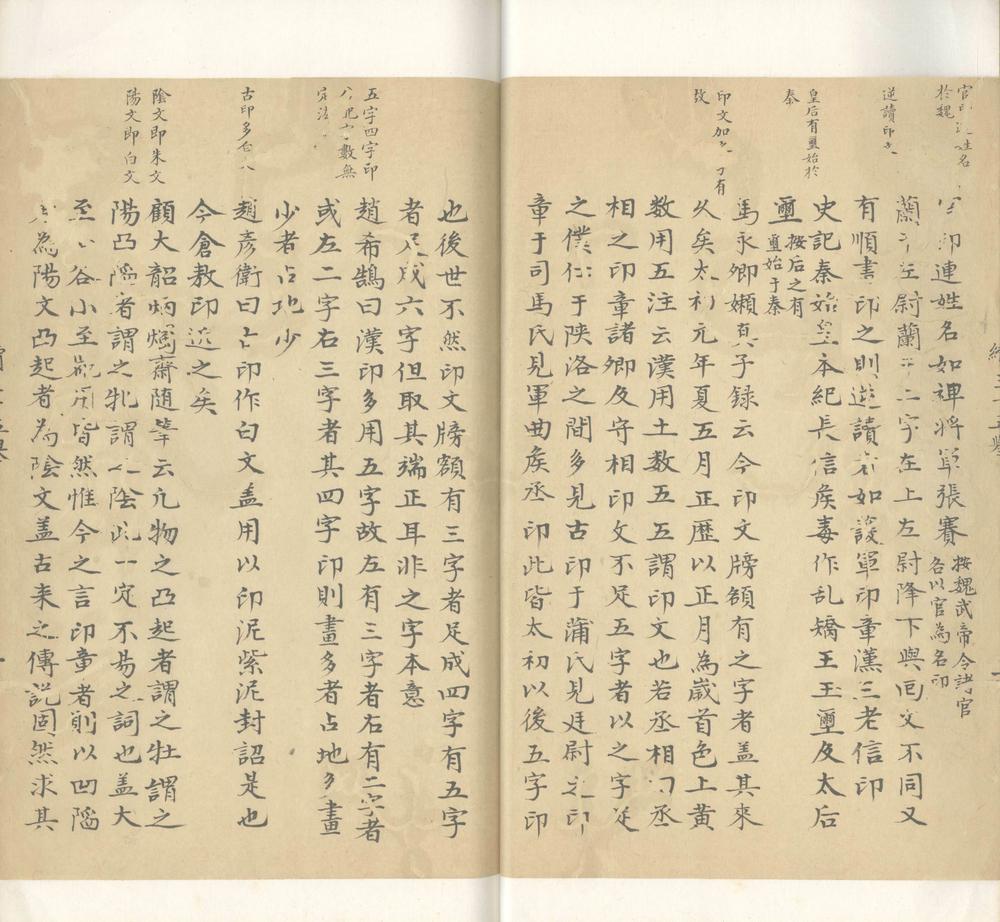 官印連姓名
於魏
逆讀印文
皇后有璽始於
秦
印文加之丁有
故
官印連姓名如裨將軍張賽按魏武帝令諸官
各以官為名印
蘭干左尉蘭干二字在上左尉降下與回文不同又
有順書印之則逆讀者如設軍印章漢三老信印
史記秦始皇本紀長信侯毐作乱矯王玉璽及太后
璽按后之有
璽始于秦
馬永卿嬾真子録云今印文牓額有之字者盖其來
久矣太初元年夏五月正歷以正月為歲首色上黄
数用五注云漢用土数五五謂印文也若丞相曰丞
相之印章諸卿及守相印文不足五字者以之字足
之僕仕于陜洛之間多見古印于蒲氏見廷尉之印
章于司馬氏見軍曲侯丞印此皆太初以後五字印
五字四字印
數無
定法
古印多
陰文即朱文
陽文即白文
也後世不然印文牓額有三字者足成四字有五字
者足成六字但取其端正耳非之字本意
趙希鵠曰漢印多用五字故左有三字者右有二字者
或左二字右三字者其四字印則畫多者占地多畫
少者占地少
趙彦衛曰古印作白文盖用以印泥紫泥封詔是也
今倉敖印近之矣
顧大韶炳燭齋随筆云凢物之凸起者謂之牡謂之
陽凸凹者謂之牝謂之陰此一定不易之詞也盖大
至谷小至皆然惟今之言印章者則以凹陷
為陽文凸起者為陰文盖古来之傳説固然求其